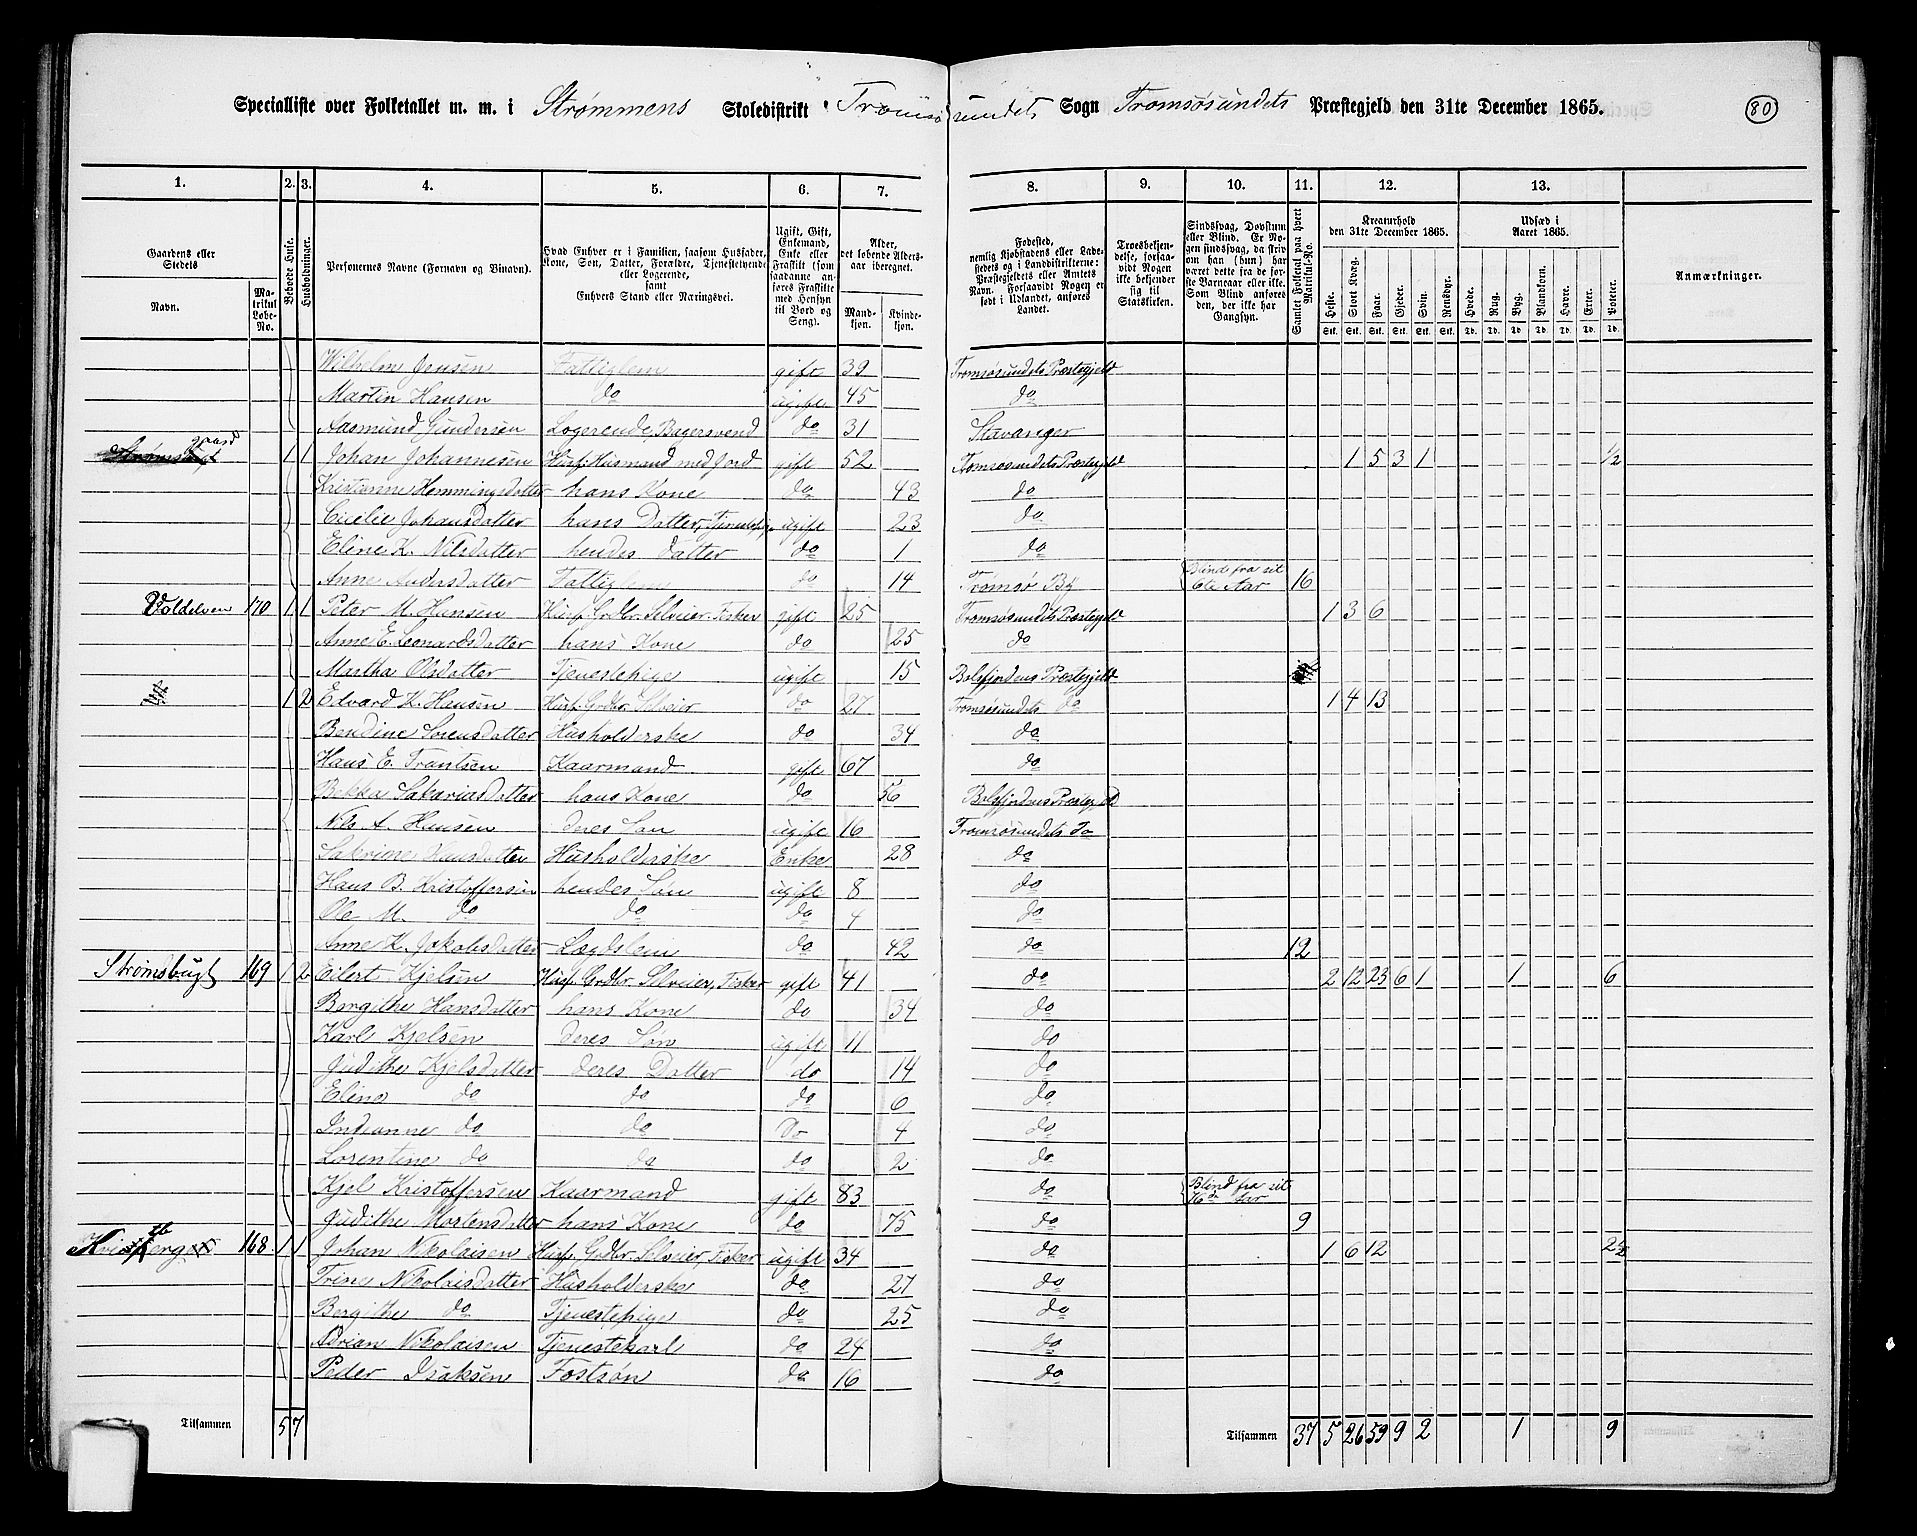 Specialliste over Folketallet m. m. i Strømmens Skoledistrikt Tromsøsundets Sogn Tromsøsundets Præstegjeld den 31te December 1865. 80
1. 2. 3. 4. 5. 6. 7. 8. 9. 10. 11. 12. 13.
Gaardens eller Stedets
Navn. Matrikul Løbe-No.
Beboede Huse.
Husholdninger.
Personernes Navne (Fornavn og Tilnavn).
Hvad Enhver er i Familien, saasom Husfader, Kone, Søn, Datter, Forældre, Tjenestetyende eller Logerende, samt Enhvers Stand eller Næringsvei.
Ugift, Gift, Enkemand, Enke eller Fraskilt (som saadanne anføres Fraskilte med Hensyn til Bord og Seng).
Alder, det løbende Aldersaar iberegnet.
Mandkjøn. Kvindekjøn.
Fødested, nemlig Kjøbstadens eller Ladestedets og i Landdistrikterne: Præstegjeldets eller Amtets Navn. Forsaavidt Nogen er født i Udlandet, anføres Landet.
Troesbekjendelse, forsaavidt Nogen ikke bekjender sig til Statskirken.
Sindssvag, Døvstum eller Blind. Er Nogen sindssvag, da frivom han (hun) har været dette fra de første Barneaar eller ikke. Som Blind anføres den, der ikke har Gangsyn.
Samlet Folketal paa hvert Matrikul-No.
Kreaturhold den 31te December 1865.
Heste. Stort Kvæg. Faar. Gjeder. Svin. Rensdyr.
Udsæd i Aaret 1865.
Hvede. Rug. Byg. Blandkorn. Havre. Erter. Poteter.
Anmærkninger.
Wilhelm Jensen Fattiglem gift 39 Tromsøsundets Præstegjeld
Martin Hansen do ugift 45 do
Aasmund Gundersen Logerende, Bagersvend do 31 Stavanger
gaard 1 1 Johan Johannesen Husf: Husmand med Jord gift 52 Tromsøsundets Præstegjeld 1 5 3 1 1/2
Kristianne Hemmingsdatter hans Kone do 43 do
Cicilie Johansdatter hans Datter, Tjenestepige ugift 23 do
Eline K. Nilsdatter hendes Datter do 1 do
Anne Andersdatter Fattiglem do 14 Tromsø By Blind fra sit 6te Aar 16
Voldelven 170 1 1 Peter M. Hansen Husf. Grdbr. Selveier. Fisker gift 25 Tromsøsundets Præstegjeld 1 3 6
Anne E. Leonardsdatter hans Kone do 25 do
Martha Olsdatter Tjenestepige ugift 15 Balsfjordens Præstegjeld
1 2 Edvard K. Hansen Husf. Grdbr. Selveier do 27 Tromsøsundets do 1 4 13
Bendine Sørensdatter Husholderske do 34 do
Hans E. Frantsen Kaarmand gift 67 do
Bekka Sakariasdatter hans Kone do 56 Balsfjordens Præstegjeld
Nils A. Hansen deres Søn ugift 16 Tromsøsundets do
Sakrine Hansdatter Husholderske Enke 28 do
Hans B. Kristoffersen hendes Søn ugift 8 do
Ole M. do do do 4 do
Anne K. Jakobsdatter Lægdslem do 42 do 12
Strømsbugt 169 1 2 Eilert Kjelsen Husf. Grdbr. Selveier, Fisker gift 41 do 2 12 23 6 1 1 6
Bergithe Hansdatter hans Kone do 34 do
Karl Kjelsen deres Søn ugift 11 do
Judithe Kjelsdatter deres Datter do 14 do
Eline do do do 6 do
Indianne do do do 4 do
Lorentine do do do 2 do
Kjel Kristoffersen Kaarmand gift 83 do Blind fra sit 76de Aar
Judithe Mortensdatter hans Kone do 75 do 9
168 1 1 Johan Nikolaisen Husf. Grdbr. Selveier, Fisker ugift 34 do 1 6 12 2 1/2
Trine Nikolaisdatter Husholderske do 27 do
Bergithe do Tjenestepige do 25 do
Adrian Nikolaisen Tjenestekarl do 24 do
Peder Isaksen Fostsøn do 16 do
Tilsammen 5 7 Tilsammen 37 5 26 59 9 2 1 9